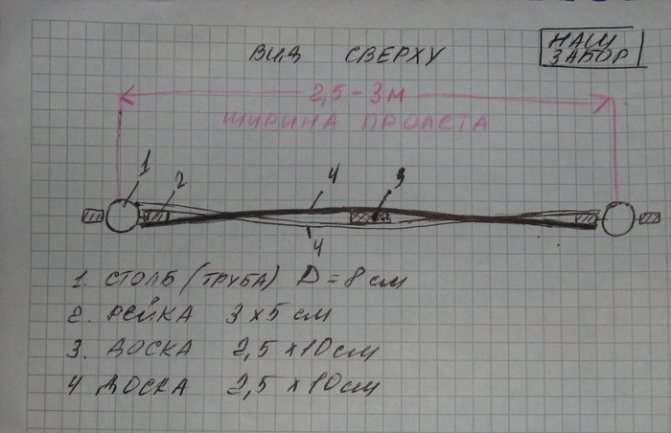 ВИД СВЕРХУ
НАШ
ЗАБОР
2,5-3м
ШИРИНА ПРОЛЕТА
1
2
4
3
4
1. СТОЛБ (ТРУБА) D=8 см
2. РЕЙКА 3 х 5 см
3. ДОСКА 2,5 х 10 см
4 ДОСКА 2,5 х 10 см